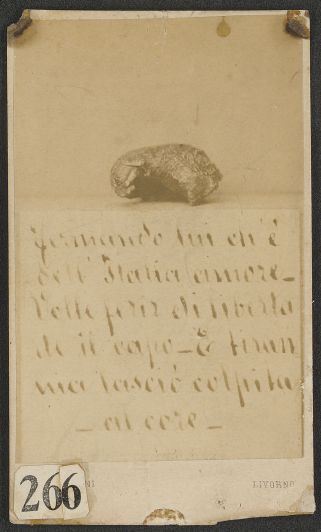 fermando lui ch'è
dell'Italia amore_
Volle ferir di libertà
de il capo_ E tiran
nia lasciò colpita
_ al core _
NI LIVORNO
266